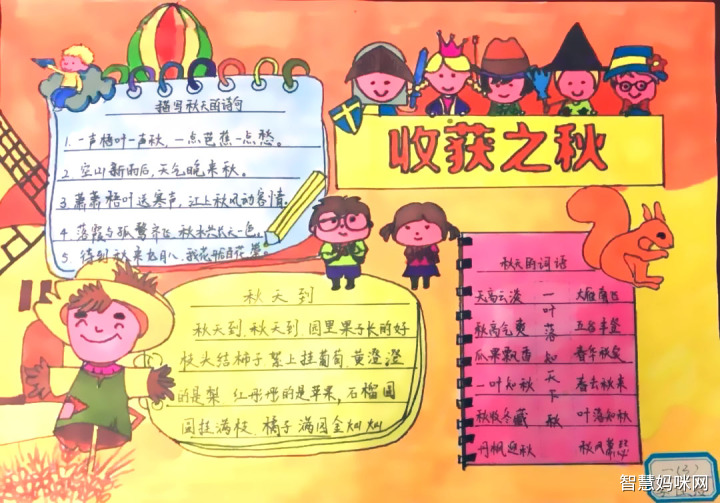 收获之秋
描写秋天的诗句
1. 一声梧叶一声秋，一点芭蕉一点愁。
2. 空山新雨后，天气晚来秋。
3 萧萧梧叶送寒声，江上秋风动客情。
4 落霞与孤鹜齐飞 秋水共长天一色。
5. 待到秋来九月八，我花开后百花杀。
秋天到
秋天到，秋天到，园里果子长的好
枝头结柿子 架上挂葡萄，黄澄澄
的是梨 红彤彤的是苹果，石榴圆
圆挂满枝，橘子满园金灿灿
秋天的词语
天高云淡
秋高气爽
瓜果飘香
一叶知秋
秋收冬藏
丹枫迎秋
一叶落知天下秋
大雁南飞
五谷丰登
春华秋实
春去秋来
叶落知秋
秋风萧瑟
智慧妈咪网